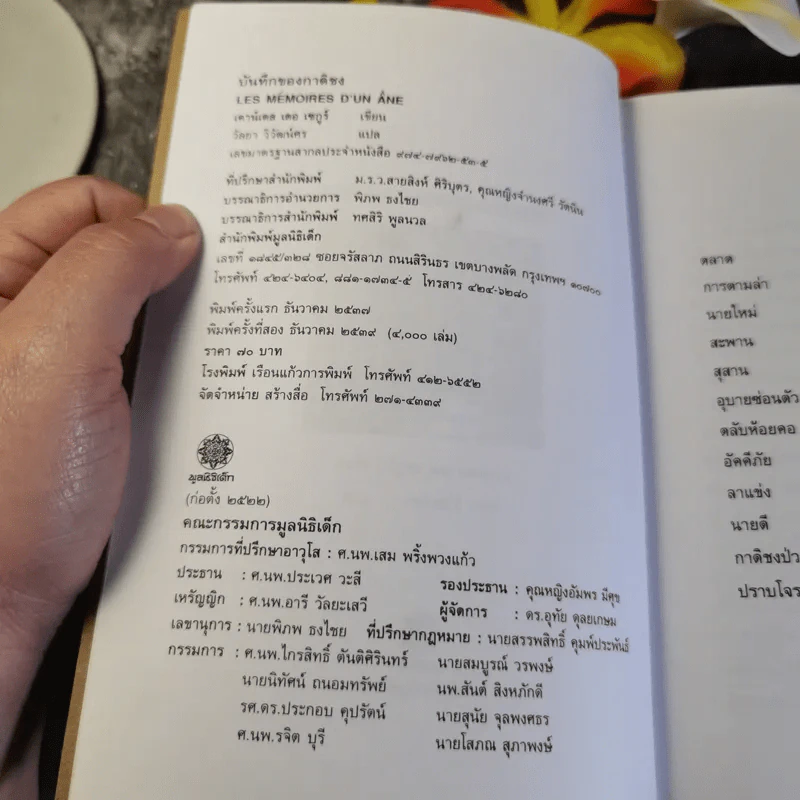 บันทึกของกาดิชง
LES MÉMOIRES D'UN ÂNE
เคาน์เตส เดอ เซกูร์ เขียน
วัลยา วิวัฒน์ศร แปล
เลขมาตรฐานสากลประจำหนังสือ ๙๗๔-๗๙๖๒-๕๓-๕
ที่ปรึกษาสำนักพิมพ์ ม.ร.ว.สายสิงห์ ศิริบุตร, คุณหญิงจำนงศรี รัตนิน
บรรณาธิการอำนวยการ พิภพ ธงไชย
บรรณาธิการสำนักพิมพ์ ทศสิริ พูลนวล
สำนักพิมพ์มูลนิธิเด็ก
เลขที่ ๑๘๔๕/๓๒๘ ซอยจรัสลาภ ถนนสิรินธร เขตบางพลัด กรุงเทพฯ ๑๐๗๐๐
โทรศัพท์ ๔๒๔-๖๔๐๔, ๘๘๑-๑๗๓๔-๕ โทรสาร ๔๒๔-๖๒๘๐
พิมพ์ครั้งแรก ธันวาคม ๒๕๓๗
พิมพ์ครั้งที่สอง ธันวาคม ๒๕๓๙ (๔,๐๐๐ เล่ม)
ราคา ๗๐ บาท
โรงพิมพ์ เรือนแก้วการพิมพ์ โทรศัพท์ ๔๑๒-๖๕๕๒
จัดจำหน่าย สร้างสื่อ โทรศัพท์ ๒๗๑-๔๓๓๙
มูลนิธิเด็ก
(ก่อตั้ง ๒๕๒๒)
คณะกรรมการมูลนิธิเด็ก
กรรมการที่ปรึกษาอาวุโส : ศ.นพ.เสม พริ้งพวงแก้ว
ประธาน : ศ.นพ.ประเวศ วะสี รองประธาน : คุณหญิงอัมพร มีศุข
เหรัญญิก : ศ.นพ.อารี วัลยะเสวี ผู้จัดการ : ดร.อุทัย ดุลยเกษม
เลขานุการ : นายพิภพ ธงไชย ที่ปรึกษากฎหมาย : นายสรรพสิทธิ์ คุมพ์ประพันธ์
กรรมการ : ศ.นพ.ไกรสิทธิ์ ตันติศิรินทร์ นายสมบูรณ์ วรพงษ์
นายนิทัศน์ ถนอมทรัพย์ นพ.สันต์ สิงหภักดี
รศ.ดร.ประกอบ คุปรัตน์ นายสุนัย จุลพงศธร
ศ.นพ.รจิต บุรี นายโสภณ สุภาพงษ์
ตลาด
การตามล่า
นายใหม่
สะพาน
สุสาน
อุบายซ่อนตัว
ตลับห้อยคอ
อัคคีภัย
ลาแข่ง
นายดี
กาดิชงป่ว
ปราบโจร